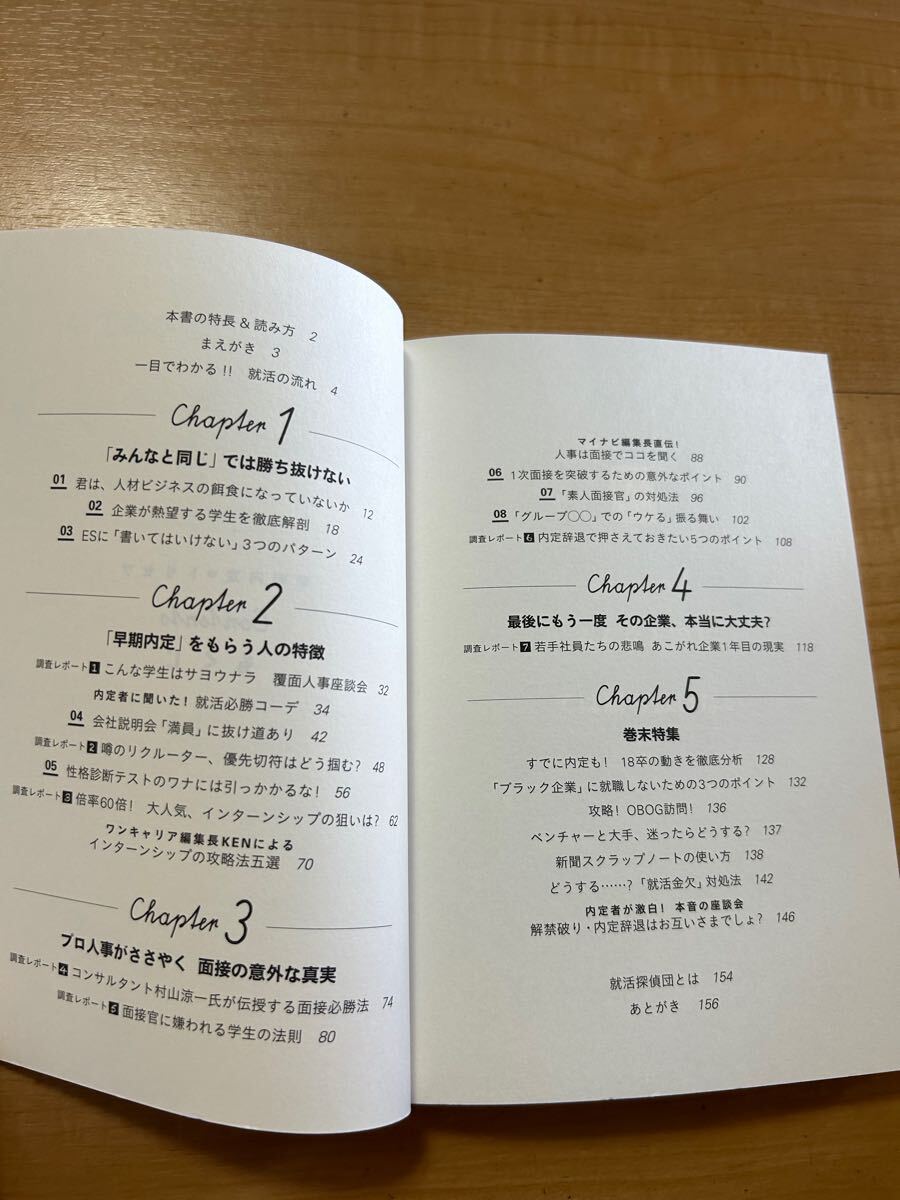 本書の特長&読み方 2
まえがき 3
一目でわかる!! 就活の流れ 4
Chapter 1
「みんなと同じ」では勝ち抜けない
01 君は、人材ビジネスの餌食になっていないか 12
02 企業が熱望する学生を徹底解剖 18
03 ESに「書いてはいけない」3つのパターン 24
Chapter 2
「早期内定」をもらう人の特徴
調査レポート1 こんな学生はサヨウナラ 覆面人事座談会 32
内定者に聞いた! 就活必勝コーデ 34
04 会社説明会「満員」に抜け道あり 42
調査レポート2 噂のリクルーター、優先切符はどう掴む? 48
05 性格診断テストのワナには引っかかるな! 56
調査レポート3 倍率60倍! 大人気、インターンシップの狙いは? 62
ワンキャリア編集長KENによる
インターンシップの攻略法五選 70
Chapter 3
プロ人事がささやく 面接の意外な真実
調査レポート4 コンサルタント村山涼一氏が伝授する面接必勝法 74
調査レポート5 面接官に嫌われる学生の法則 80
マイナビ編集長直伝!
人事は面接でココを聞く 88
06 1次面接を突破するための意外なポイント 90
07 「素人面接官」の対処法 96
08 「グループ◯◯」での「ウケる」振る舞い 102
調査レポート6 内定辞退で押さえておきたい5つのポイント 108
Chapter 4
最後にもう一度 その企業、本当に大丈夫?
調査レポート7 若手社員たちの悲鳴 あこがれ企業1年目の現実 118
Chapter 5
巻末特集
すでに内定も! 18卒の動きを徹底分析 128
「ブラック企業」に就職しないための3つのポイント 132
攻略! OBOG訪問! 136
ベンチャーと大手、迷ったらどうする? 137
新聞スクラップノートの使い方 138
どうする……?「就活金欠」対処法 142
内定者が激白! 本音の座談会
解禁破り・内定辞退はお互いさまでしょ? 146
就活探偵団とは 154
あとがき 156